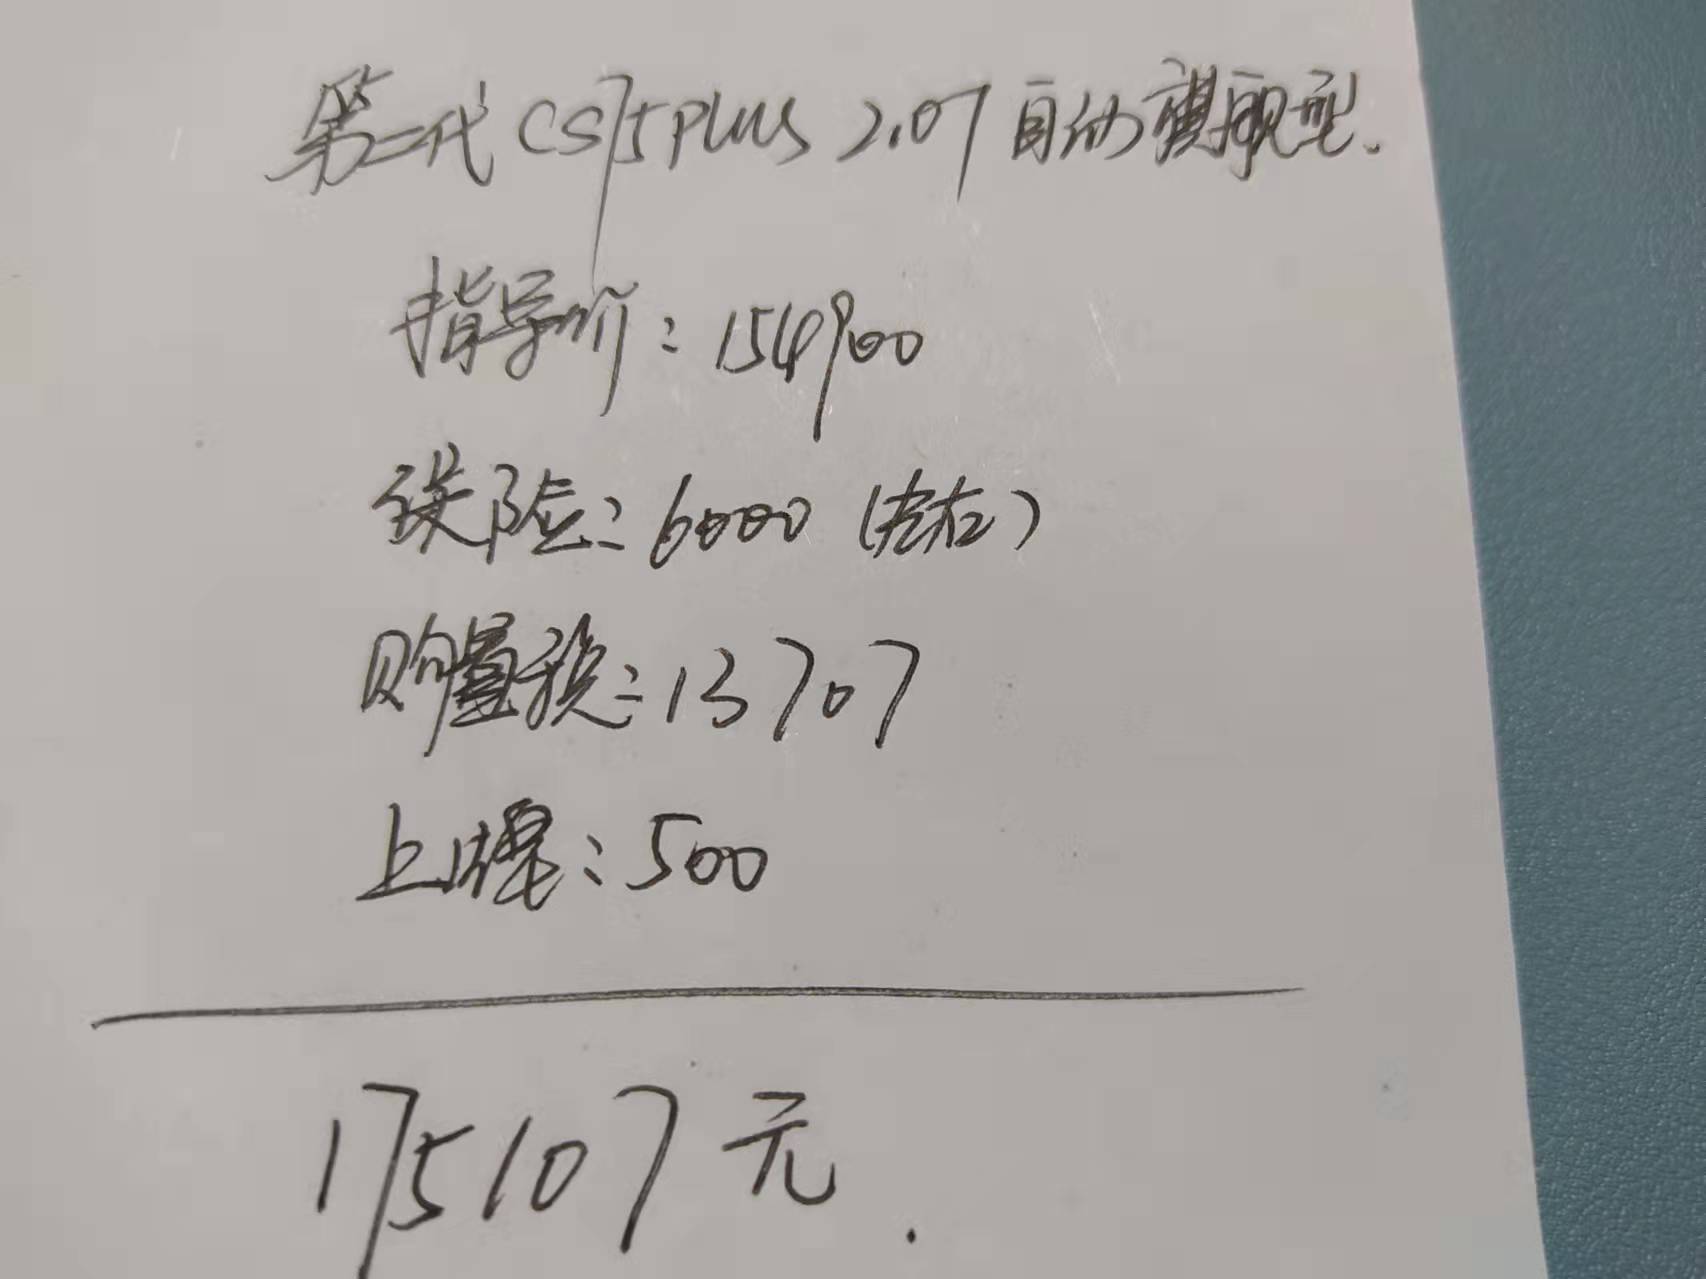 第二代 CS75PLUS 2.0T 自动旗舰型.
指导价: 154900
保险: 6000 (左右)
购置税: 13707
上牌: 500
175107 元.